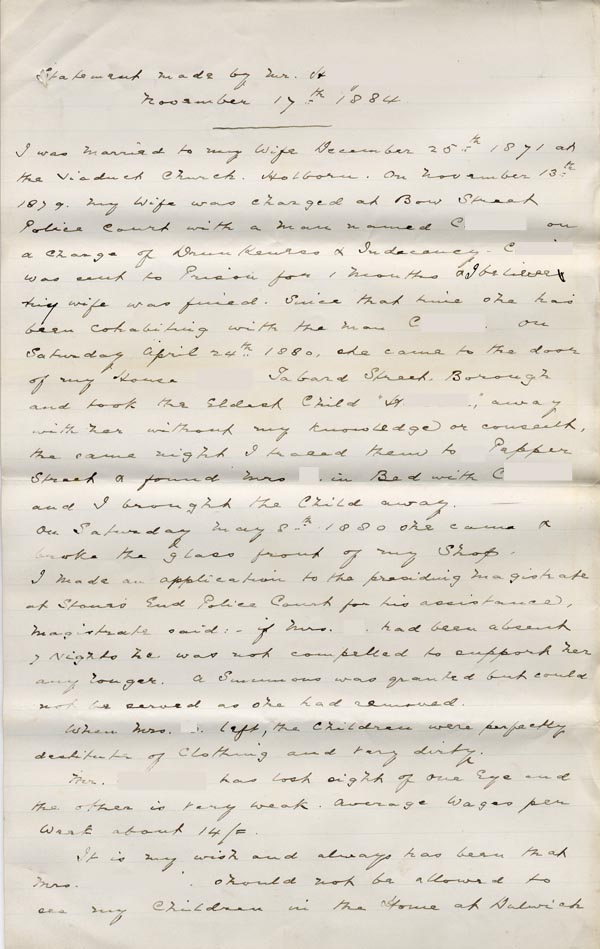 Statement made by Mr. H
November 17th 1884
I was married to my Wife December 25th 1871 at
the Viaduct Church. Holborn. On November 13th
1879. my Wife was charged at Bow Street
Police Court with a man named C on
a charge of Drunkeness & Indecency. C
was sent to Prison for 1 months & I believe
my wife was fined. Since that time she has
been cohabiting with the man C . On
Saturday April 24th 1880, she came to the door
of my House Tabard Street. Borough
and took the Eldest Child "H ", away
with her without my knowledge or consent,
the same night I traced them to Pepper
Street & found Mrs . in Bed with C
and I brought the Child away.
On Saturday May 8th 1880 she came &
broke the glass front of my Shop.
I made an application to the presiding magistrate
at Stones End Police Court for his assistance,
magistrate said:- if Mrs. . had been absent
7 Nights he was not compelled to support her
any longer. A Summons was granted but could
not be served as she had removed.
When Mrs. . left, the Children were perfectly
destitute of Clothing and very dirty.
Mr. has lost sight of one Eye and
the other is very weak. Average Wages per
Week about 14/=.
It is my wish and always has been that
Mrs. . should not be allowed to
see my Children in the Home at Dulwich